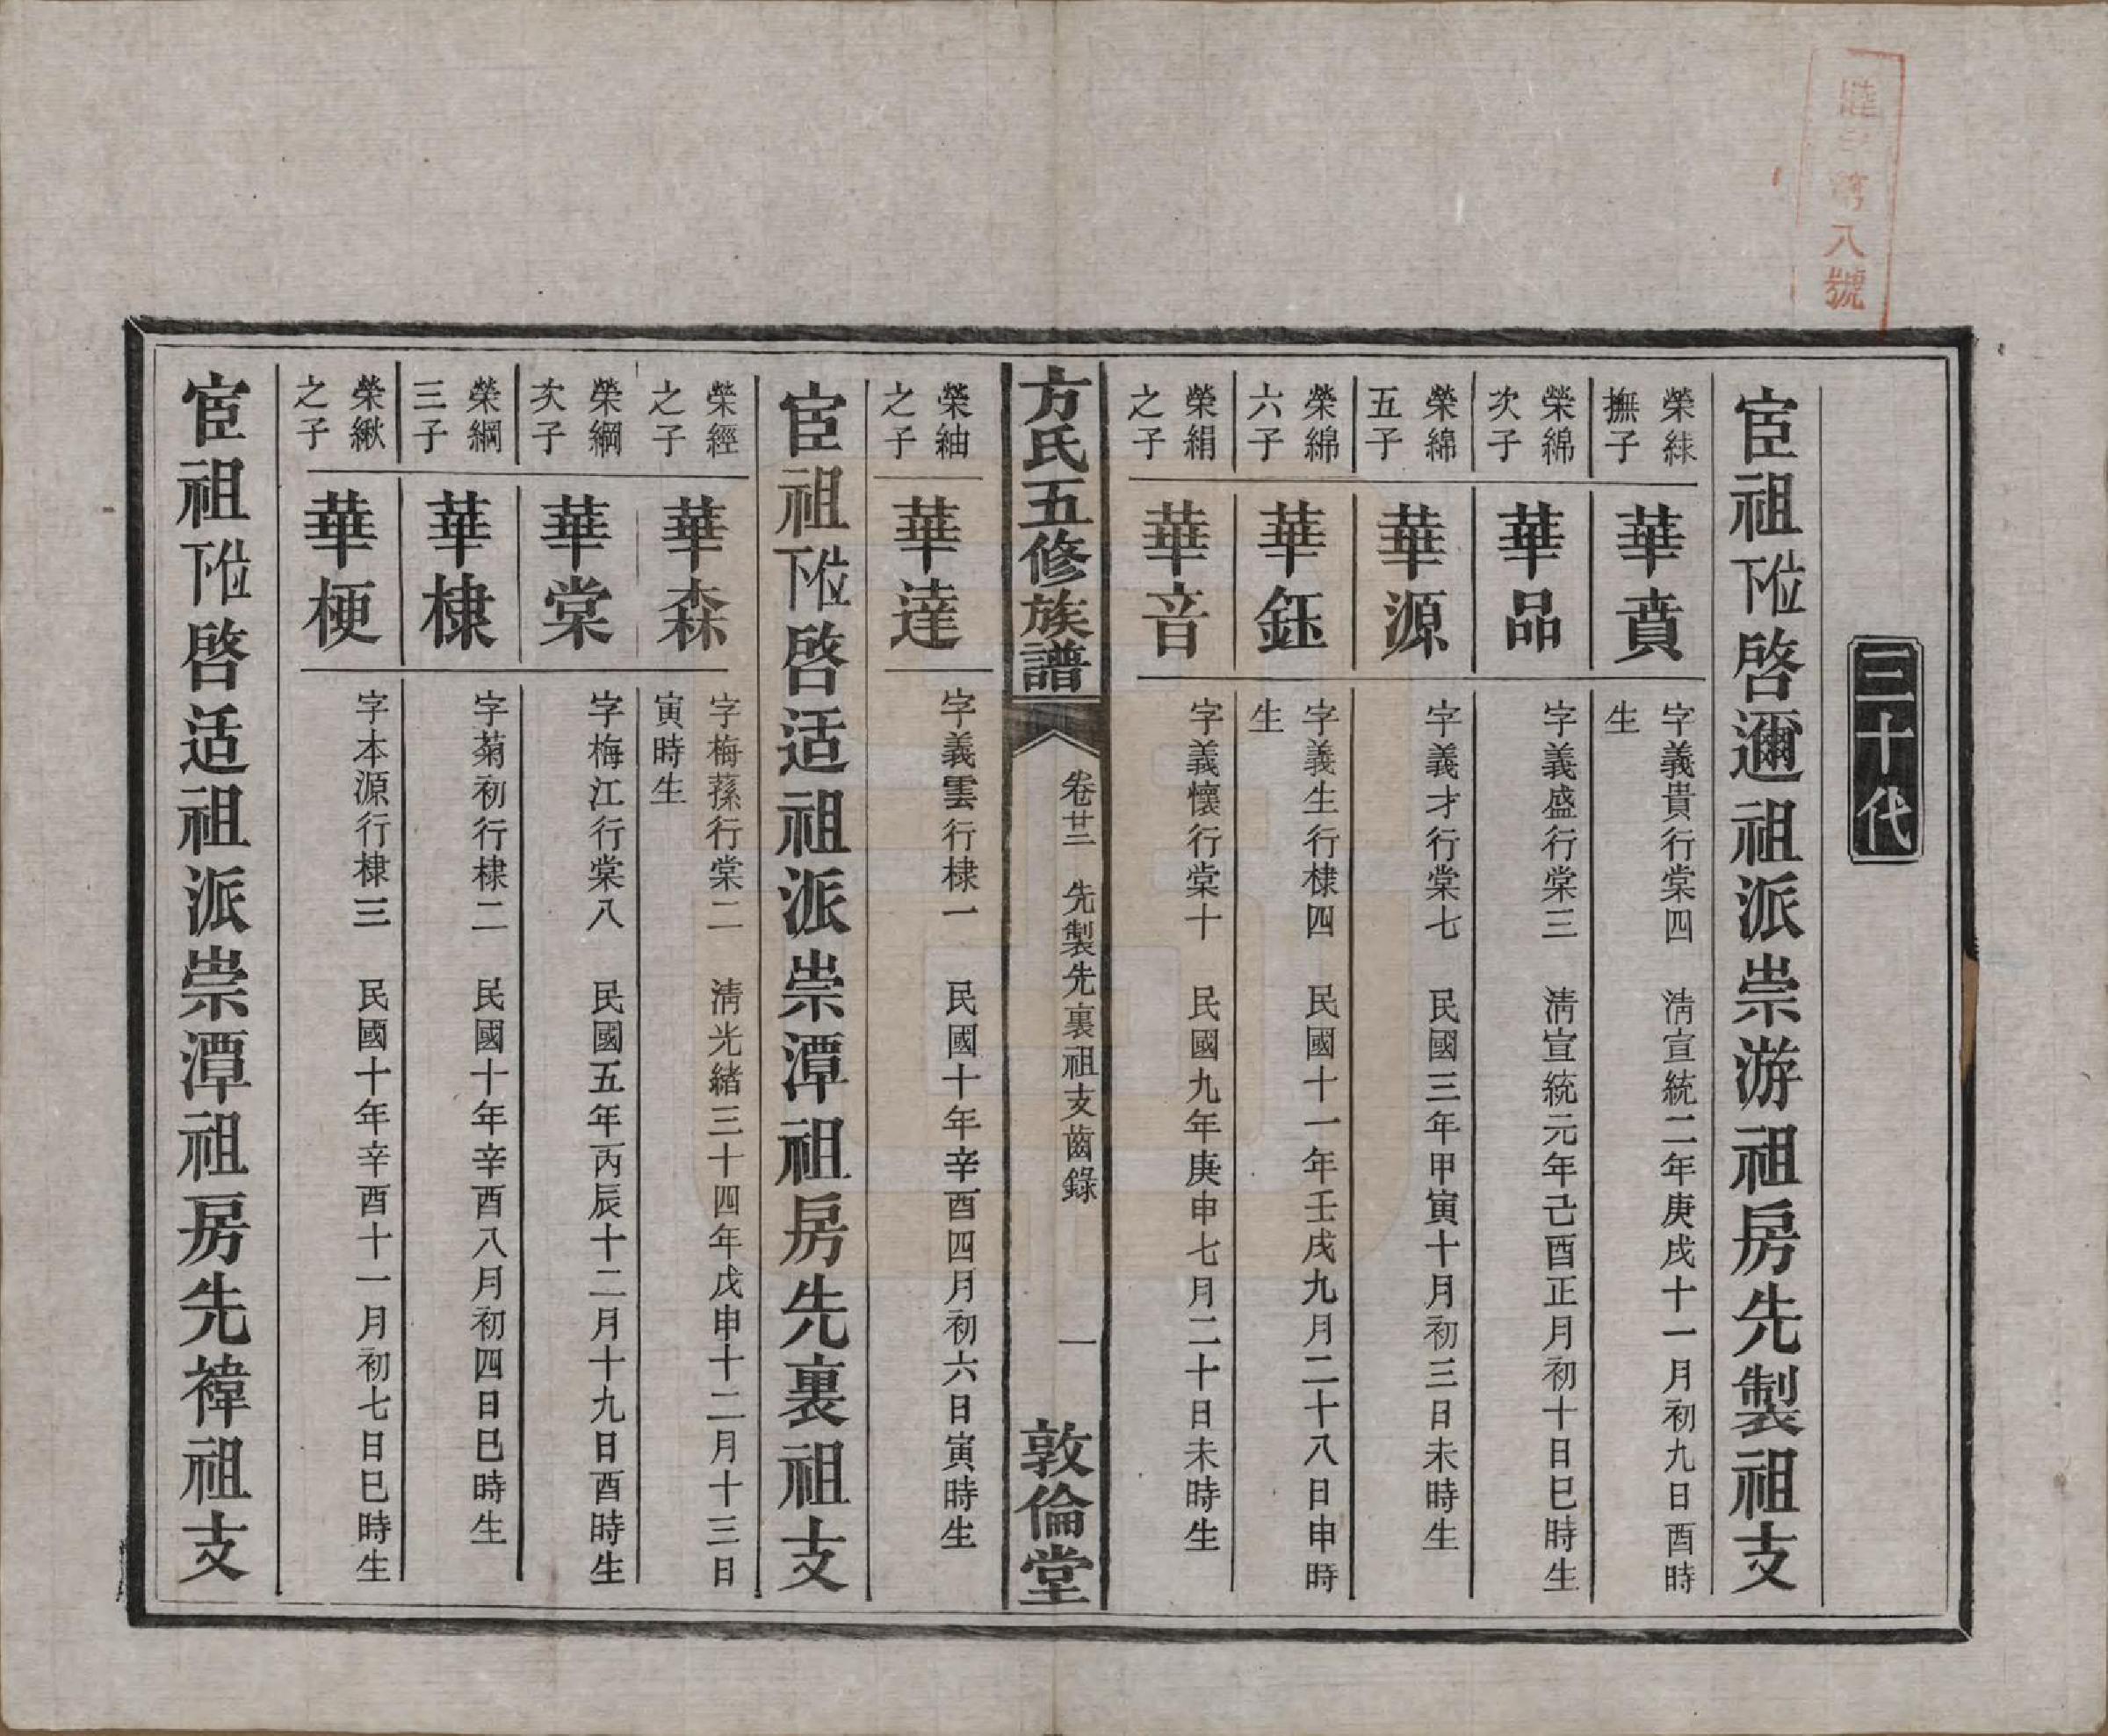 八號
三十代
宦祖位下啓邇祖派崇游祖房先製祖支
榮絑撫子
華賁
字義貴行棠四　淸宣統二年庚戌十一月初九日酉時生
榮綿次子
華品
字義盛行棠三　淸宣統元年己酉正月初十日巳時生
榮綿五子
華源
字義才行棠七　民國三年甲寅十月初三日未時生
榮綿六子
華鈺
字義生行棣四　民國十一年壬戌九月二十八日申時生
榮絹之子
華音
字義懷行棠十　民國九年庚申七月二十日未時生
方氏五修族譜
卷廿二　先製先裏祖支齒錄
一
敦倫堂
榮紬之子
華達
字義雲行棣一　民國十年辛酉四月初六日寅時生
宦祖位下啓适祖派崇潭祖房先裏祖支
榮經之子
華森
字梅蓀行棠二　淸光緒三十四年戊申十二月十三日寅時生
榮綱次子
華棠
字梅江行棠八　民國五年丙辰十二月十九日酉時生
榮綱三子
華棣
字菊初行棣二　民國十年辛酉八月初四日巳時生
榮緅之子
華梗
字本源行棣三　民國十年辛酉十一月初七日巳時生
宦祖位下啓适祖派崇潭祖房先褘祖支